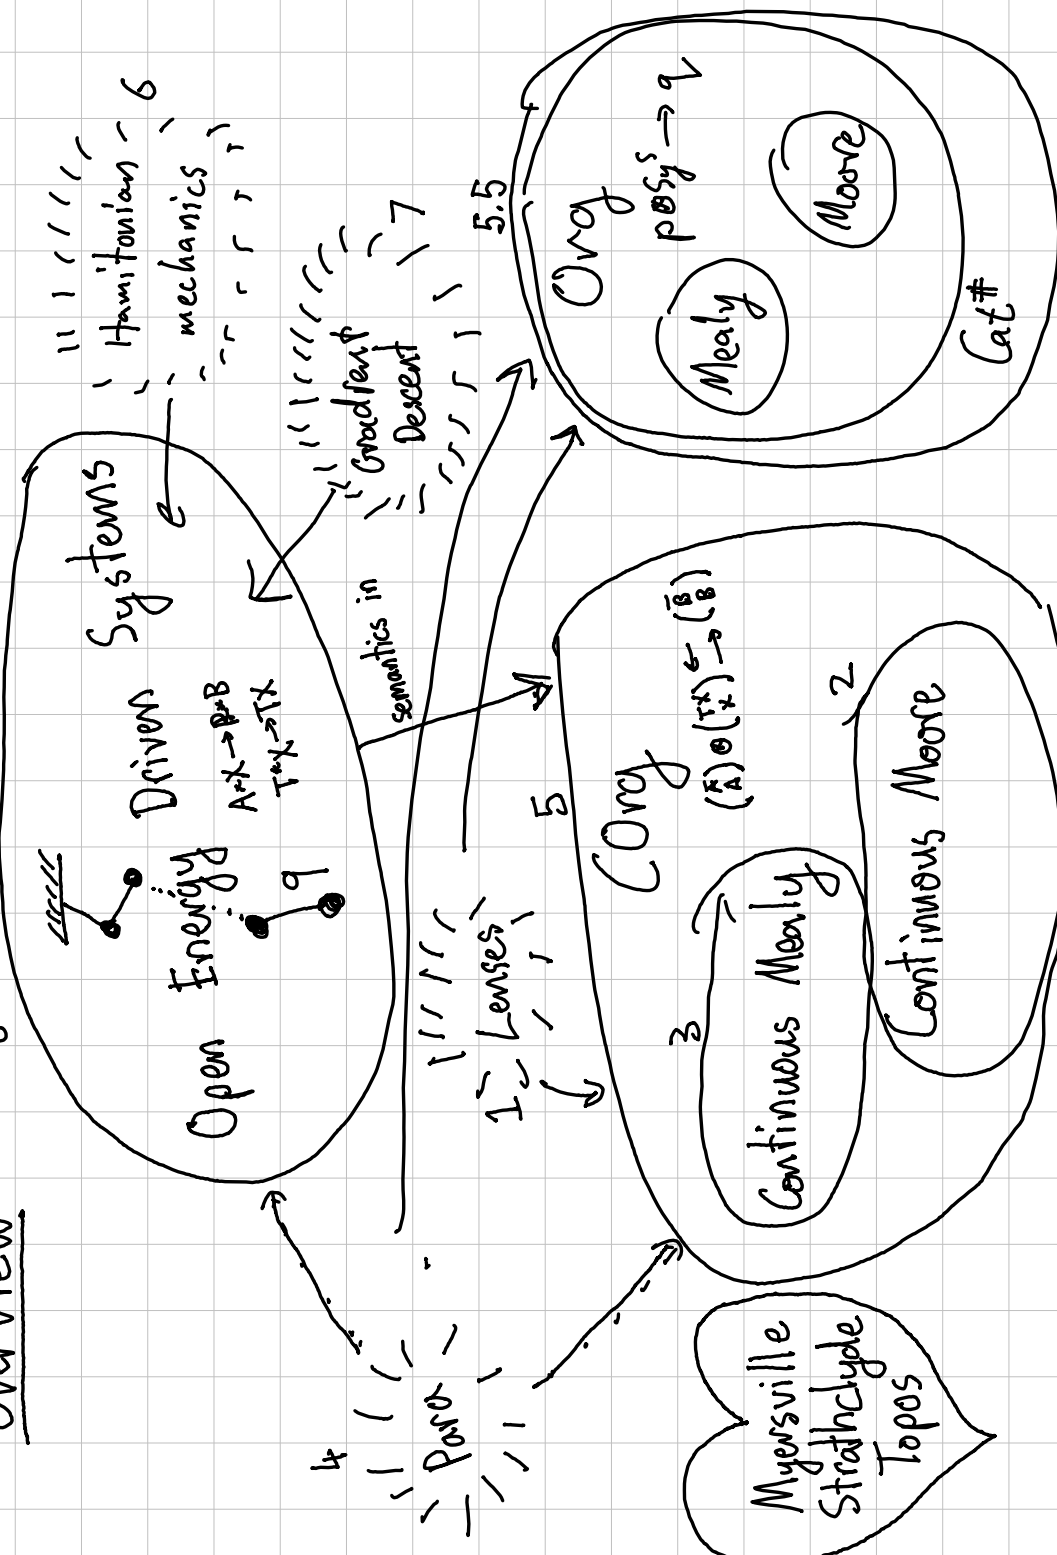 Overview
Open Energy Driven Systems
A×X→B×B
T*X→TX
q
Hamitonian
mechanics
6
Gradient
Descent
7
semantics in
4
Para
1
Lenses
5
COrg
3
Continuous Mealy
2
Continuous Moore
5.5
Org
p⊗Sy^S → q
Mealy
Moore
Cat#
Myersville
Strathclyde
Topos